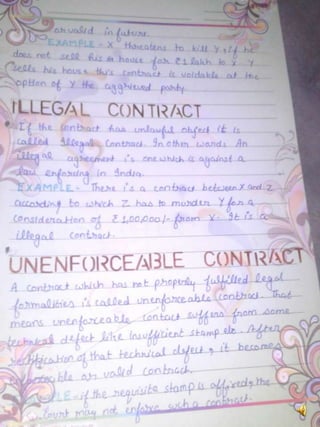 or valid in future.
EXAMPLE - X threatens to kill Y, if he
does not sell his house for ₹1 lakh to X. Y
sells his house, this contract is voidable at the
option of Y the aggrieved party.
ILLEGAL CONTRACT
If the contract has unlawful object it is
called Illegal Contract. In other words An
illegal agreement is one which is against a
law enforcing in India.
EXAMPLE - There is a contract between X and Z
according to which Z has to murder Y for a
consideration of ₹ 1,00,000/- from X. It is a
illegal contract.
UNENFORCEABLE CONTRACT
A contract which has not properly fulfilled legal
formalities is called unenforceable contract. That
means unenforceable contract suffers from some
technical defect like insufficient stamp etc. After
rectification of that technical defect, it becomes
or valid contract.
if the requisite stamp is affixed, the
court may not enforce such a contract.